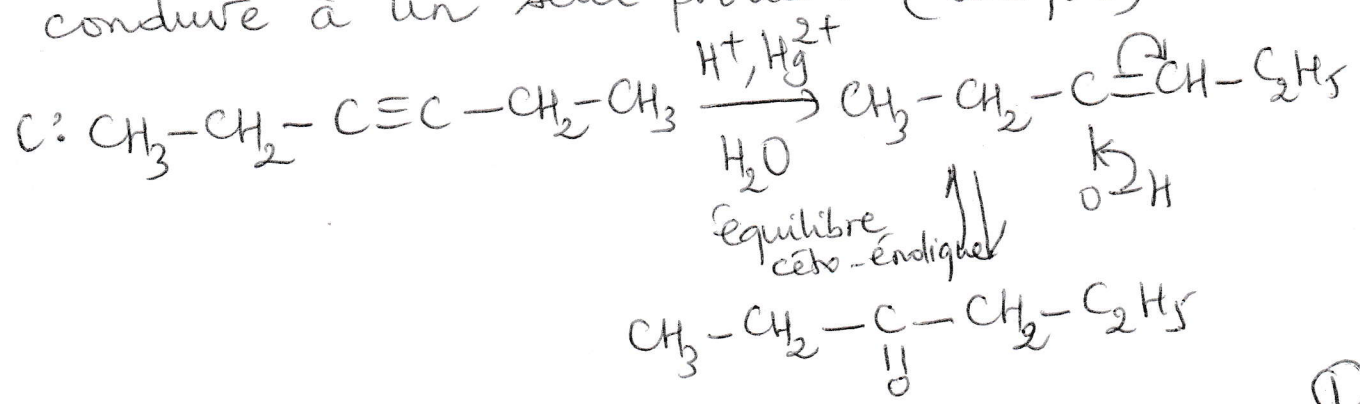 conduire à un seul produit
C: CH₃-CH₂-C≡C-CH₂-CH₃ H⁺, Hg²⁺ H₂O CH₃-CH₂-C=CH-C₂H₅
O H
équilibre
céto-énolique
CH₃-CH₂-C-CH₂-C₂H₅
O
1